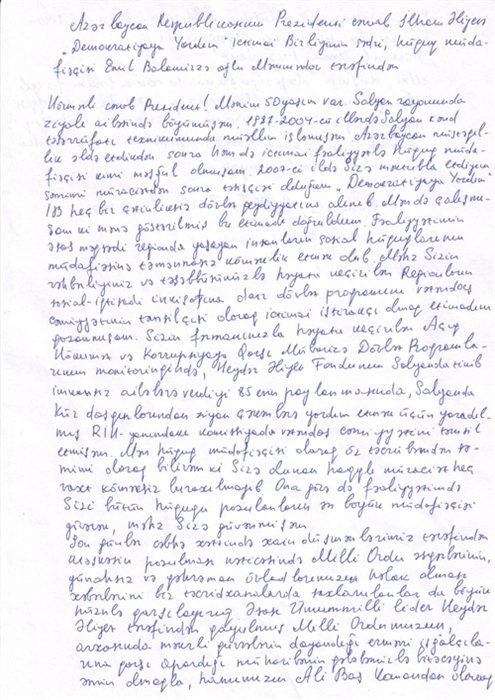 Azərbaycan Respublikasının Prezidenti cənab İlham Əliyevə
"Demokratiyaya Yardım" İctimai Birliyinin sədri, hüquq müda-
fiəçisi Emil Balamirzə oğlu Məmmədov tərəfindən
Hörmətli cənab Prezident! Mənim 50 yaşım var. Salyan rayonunda
ziyalı ailəsində böyümüşəm. 1981-2004-cü illərdə Salyan kənd
təsərrüfatı texnikumunda müəllim işləmişəm. Azərbaycan müstəqil-
lik əldə etdikdən sonra həmdə ictimai fəaliyyətlə hüquq müda-
fiəçisi kimi məşğul olmuşam. 2007-ci ildə Sizə məktubla etdiyim
səmimi müraciətdən sonra təsisçisi olduğum "Demokratiyaya Yardım"
İB heç bir çətinliksiz dövlət qeydiyyatına alınıb. Məndə çalışmı-
şam ki mənə göstərilmiş bu etimadı doğruldum. Fəaliyyətimin
əsas məqsədi regionda yaşayan insanların sosial hüquqlarının
müdafiəsinə təmənnasız köməklik etmək olub. Məhz Sizin
rəhbərliyiniz və təşəbbüsünüzlə həyata keçirilən Regionların
sosial-iqtisadi inkişafına dair dövlət proqramının vətəndaş
cəmiyyətinin təmsilçisi olaraq ictimai iştirakçı olmaq etimadını
qazanmışam. Sizin fərmanınızla həyata keçirilən Açıq
Hökumət və Korrupsiyaya Qarşı Mübarizə Dövlət Proqramla-
rının monitorinqində, Heydər Əliyev Fondunun Salyanda
imkansız ailələrə verdiyi 85 ərzaq paylanmasında, Salyanda
Kür daşqınlarından ziyan çəkənlərə yardım etmək üçün yaradıl-
mış RİH-yanındakı komissiyada vətəndaş cəmiyyətini təmsil
etmişəm. Mən hüquq müdafiəçisi olaraq öz təcrübəmdən sə-
mimi olaraq bilirəm ki Sizə olunan haqqlı müraciətə heç
vaxt köməksiz buraxılmayıb. Ona görə də fəaliyyətimdə
Sizi bütün hüququ pozulanların ən böyük müdafiəçisi
görərəm, məhz Sizə güvənmişəm.
Son günlər cəbhə xəttində xain düşmənlərimiz tərəfindən
atəşkəsin pozulması nəticəsində Milli Ordu əsgərlərinin,
günahsız və qəhrəman övladlarımızın həlak olması
xəbərlərini biz təcridxanalarda saxlanılanlar da böyük
hüznlə qarşılayırıq. Əsası Ümummilli lider Heydər
Əliyev tərəfindən qoyulmuş Milli Ordumuzun,
arxasında mənəvi güvənlərin dayandığı erməni işğalçıla-
rına qarşı apardığı müharibənin qələbəmizlə bitəcəyinə
əmin olmaqla, hamımızın Ali Baş Komandan olaraq